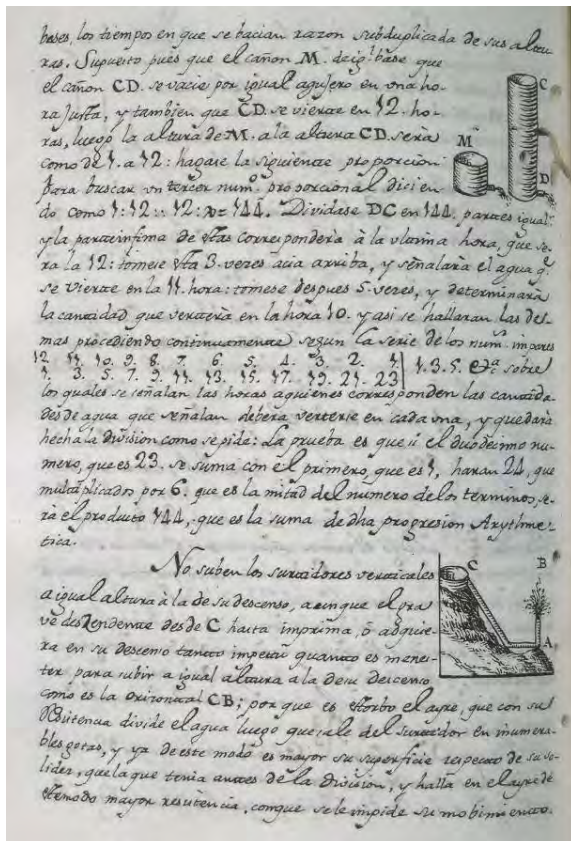 bases, los tiempos en que se bacian razon subduplicada de sus altu
ras. Supuesto pues que el cañon M. de igl. base que
el cañon CD. se vacie por igual agujero en vna ho-
ra justa, y tambien que CD. se vierte en 12. ho-
ras, luego la altura de M. a la altura CD. sera
como de 1. a 12: hagase la siguiente proporcion
para buscar vn tercer numo. proporcional dicien
do como 1:12:: 12: x= 144. Dividase DC en 144. partes igual.
y la parte infima de estas correspondera à la vltima hora, que se-
ra la 12: tomese esta 3. vezes acia arriba, y señalarà el agua q.
se vierte en la 11. hora: tomese despues 5. vezes, y determinarà
la cantidad que verterà en la hora 10. y asi se hallaran las de-
mas procediendo continuamente segun la serie de los nums. impares
12. 11. 10. 9. 8. 7. 6. 5. 4. 3. 2. 1.
1. 3. 5. 7. 9. 11. 13. 15. 17. 19. 21. 23 | 1. 3. 5. &a. sobre
los quales se señalan las horas aquienes corresponden las cantida-
des de agua que señalan deberà verterse en cada vna, y quedarà
hecha la division como se pide: La prueba es que si el duodecimo nu-
mero, que es 23. se suma con el primero, que es 1, haran 24, que
multiplicados por 6. que es la mitad del numero de los terminos, se-
rà el producto 144,. que es la suma de dha progresion Arythme-
tica.
No suben los surtidores verticales
a igual altura à la de su descenso, aunque el gra
ve deszendente desde C hasta imprima, ò adquie-
ra en su descenso tanto impetu quanto es menes-
ter para subir a igual altura a la de su descenso
como es la orizontal CB; por que es estorbo el ayre, que con su
resistencia divide el agua luego que sale del surtidor en inumera-
bles gotas, y ya de este modo es mayor su superficie respecto de su so-
lidez, que la que tenia antes de la division, y halla en el ayre de
este modo mayor resistencia, conque se le impide su mobimiento.
M
C
D
C
B
A